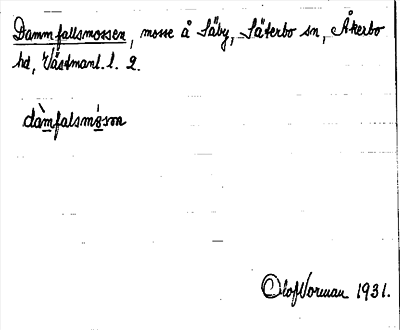 Dammfallsmossen, mosse å Säby, Säterbo sn, Åkerbo
hd, Västmanl. l. 2.
dàmfalsmòsɐn
Olof Norman 1931.